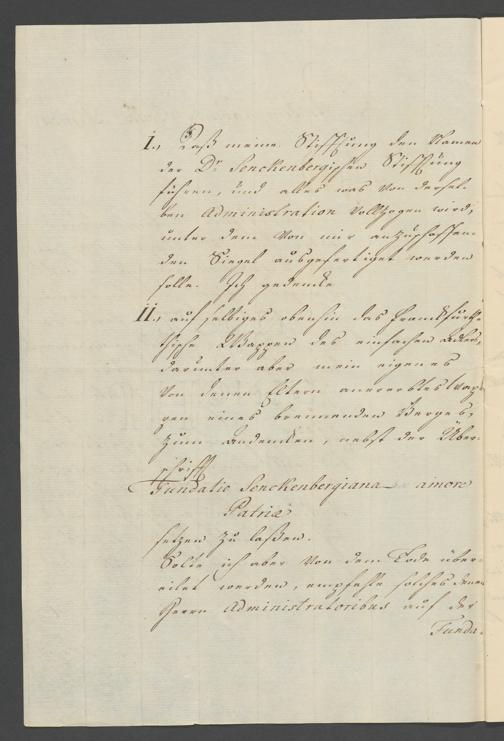 I., Daß meine Stifftung den Namen
der Dr. Senckenbergischen Stifftung
führen, und alles was von dersel-
ben Administration vollzogen wird,
unter dem von mir anzuschaffen-
den Siegel ausgefertiget werden
solle. Ich gedencke
II., auf selbiges obenhin das Franckfurth-
ische Wappen des einfachen Adlers,
darunter aber mein eigenes
von denen Eltern anererbtes Wap-
pen eines brennenden Berges,
zum Andencken, nebst der Über-
schrifft
Fundatio Senckenbergiana amore
Patriæ
setzen zu laßen.
Solte ich aber von dem Tode über-
eilet werden, empfehle solches denen
Herrn Administratoribus auf der
Funda-